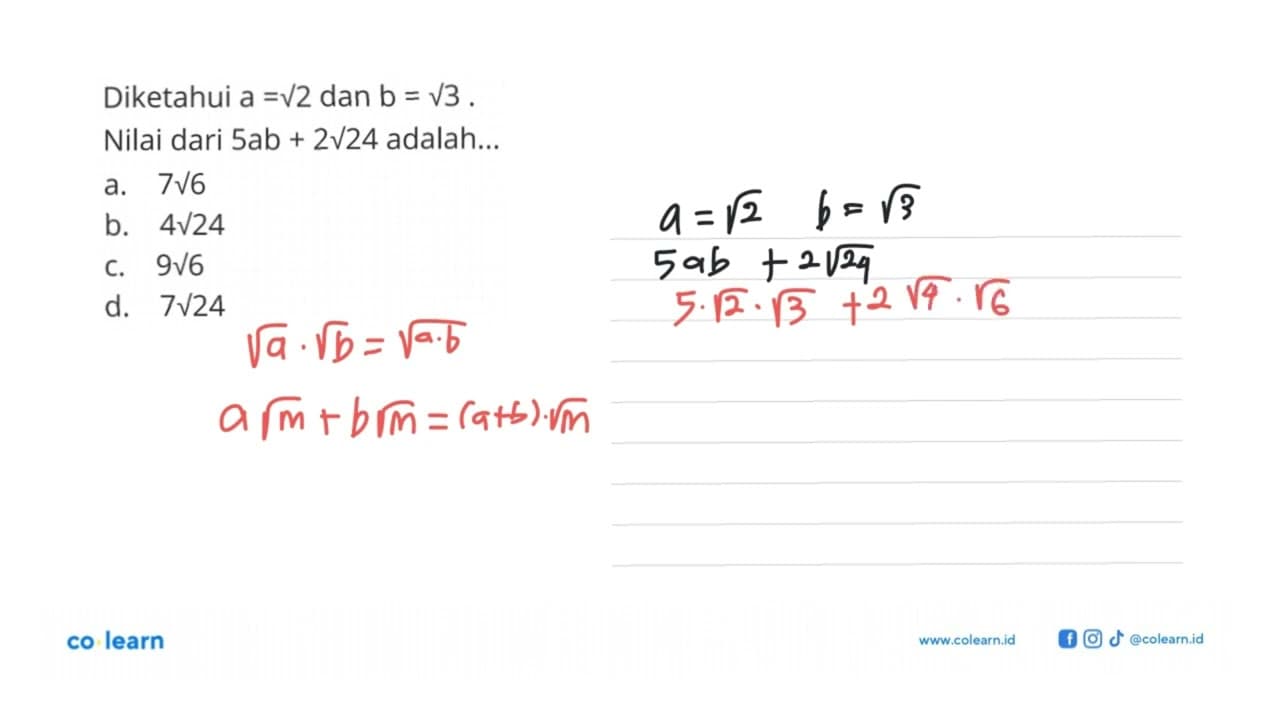 Diketahui a =√2 dan b = √3 .
Nilai dari 5ab + 2√24 adalah...
a. 7√6
b. 4√24
c. 9√6
d. 7√24
√a . √b = √a.b
a√m + b√m = (a+b).√m
a = √2 b = √3
5ab + 2√24
5.√2.√3 + 2√4.√6
co learn
www.colearn.id @colearn.id